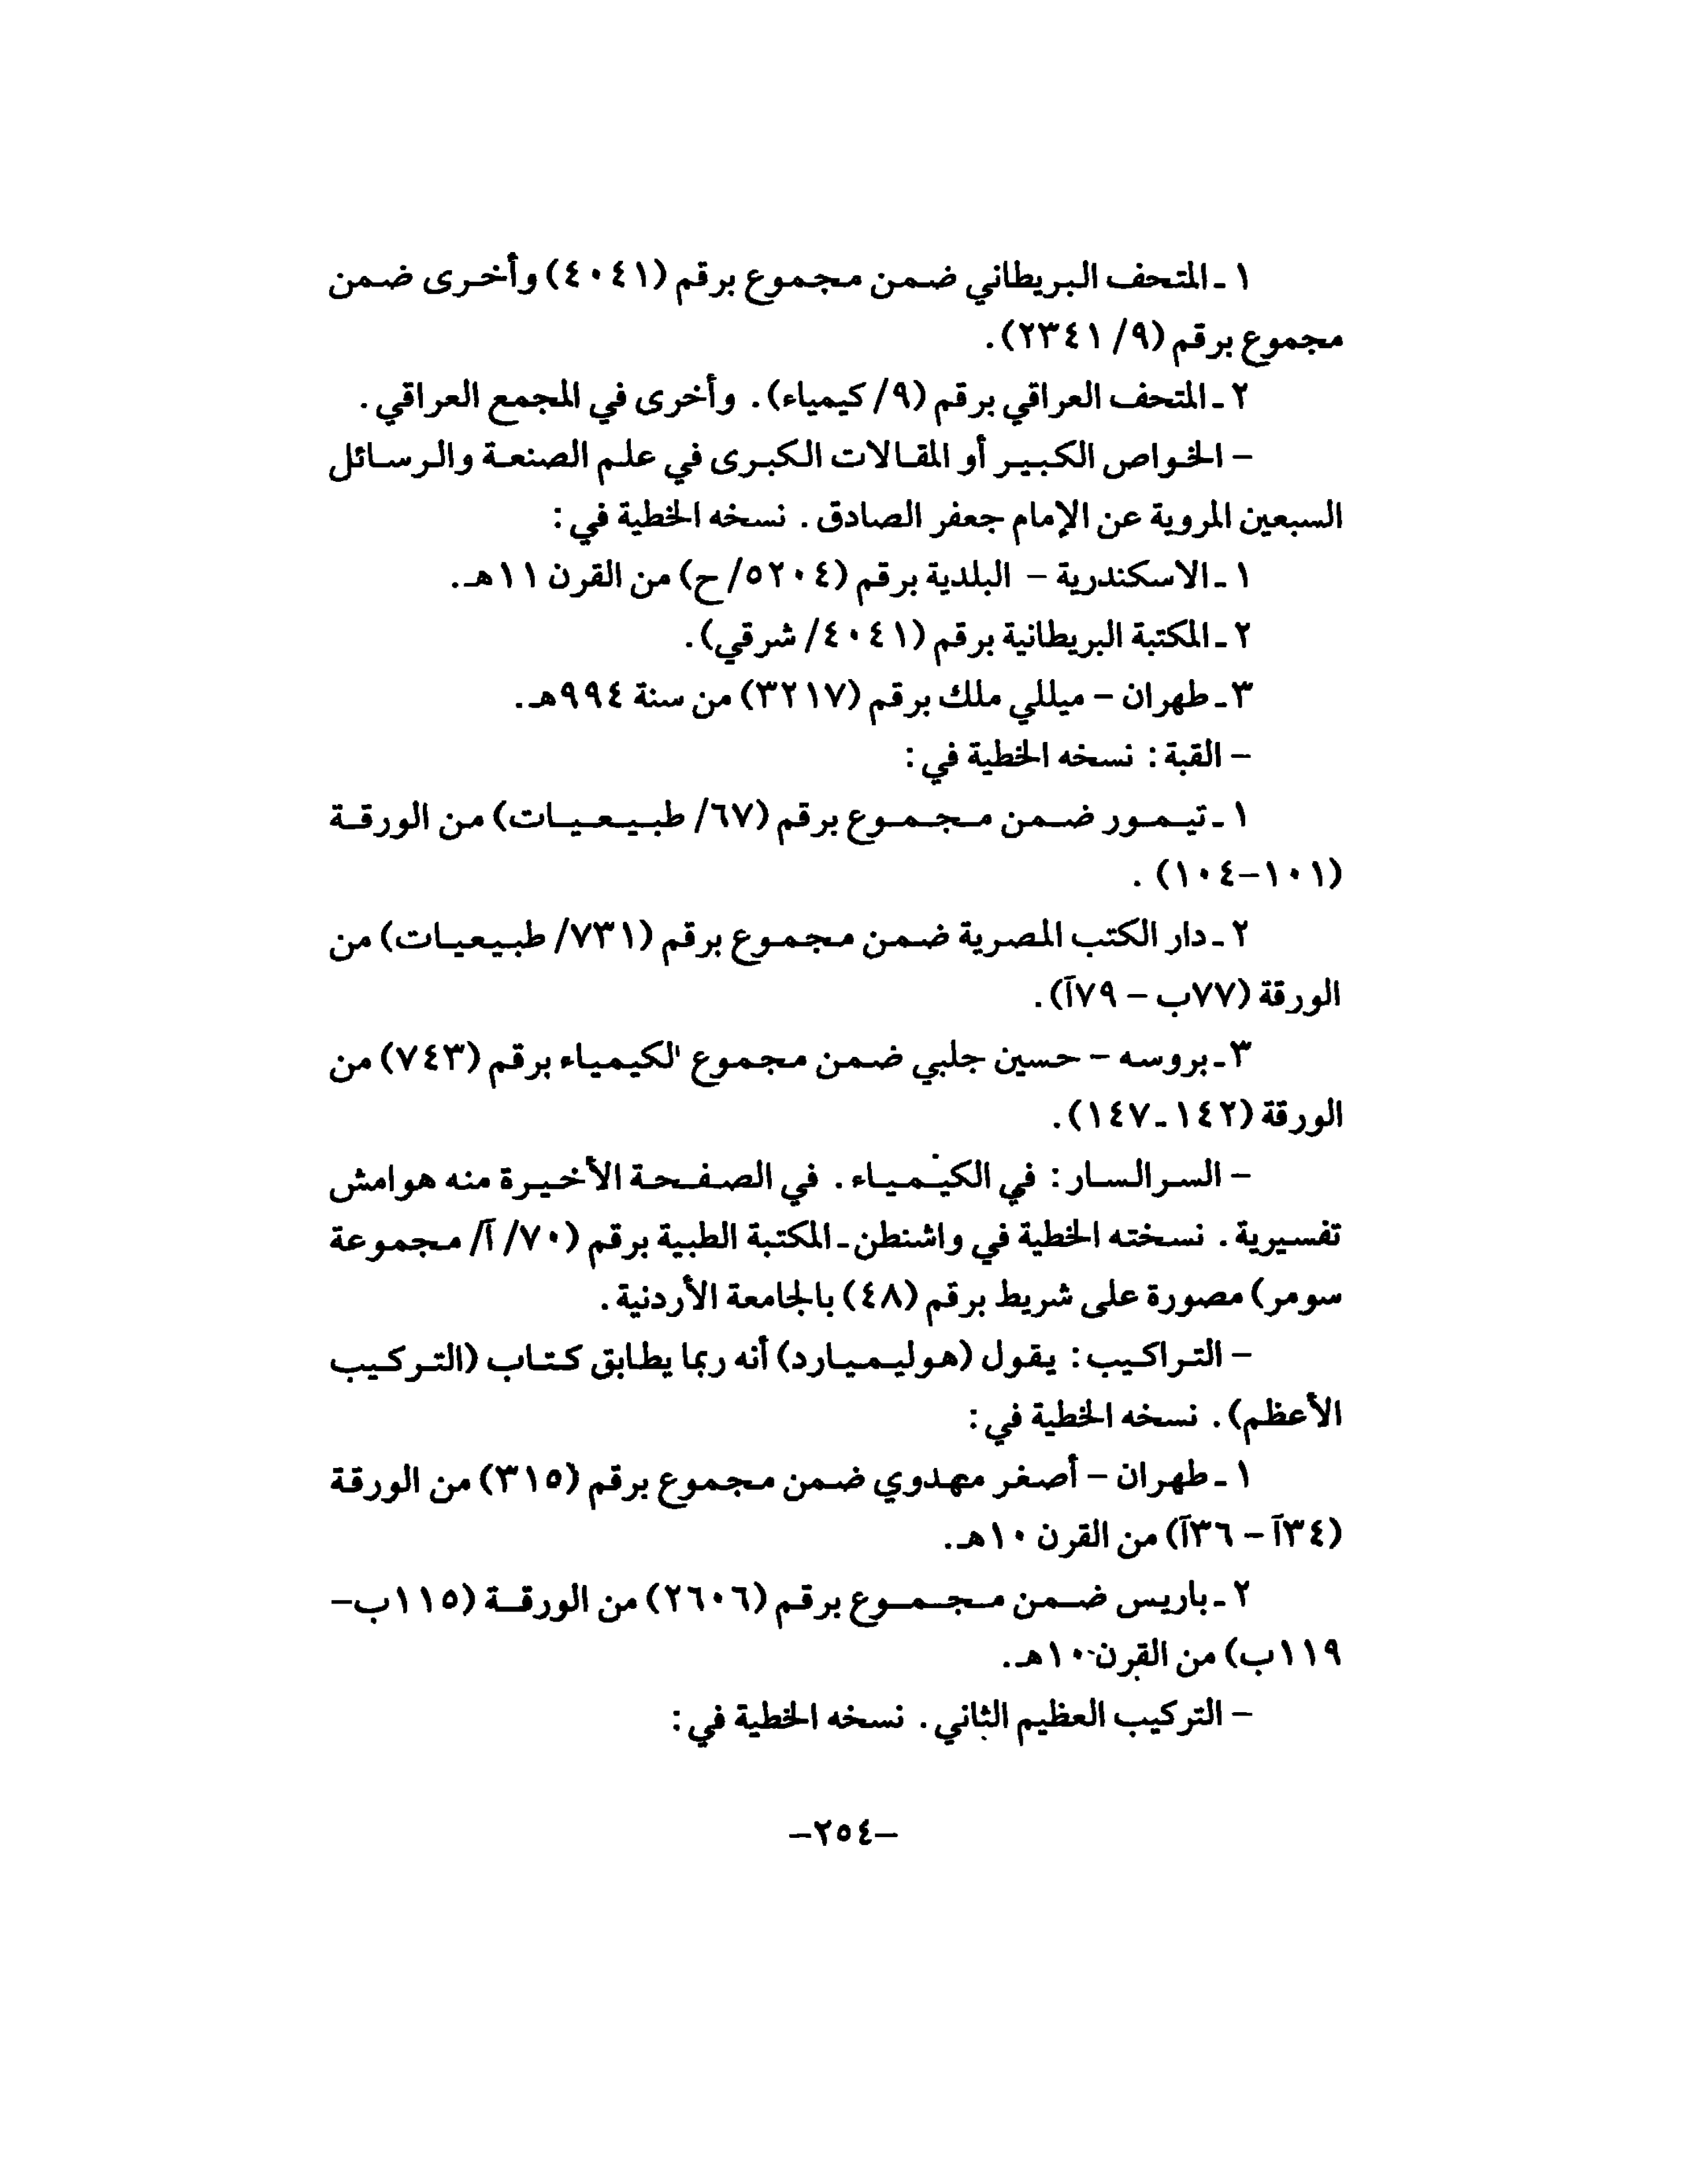 ١ ـ المتحف البريطاني ضمن مجموع برقم (٤٠٤١) وأخرى ضمن
مجموع برقم (٩/ ٢٣٤١).
٢ ـ المتحف العراقي برقم (٩/ كيمياء). وأخرى في المجمع العراقي.
– الخواص الكبير أو المقالات الكبرى في علم الصنعة والرسائل
السبعين المروية عن الإمام جعفر الصادق. نسخه الخطية في:
١ ـ الاسكندرية – البلدية برقم (٥٢٠٤/ ح) من القرن ١١هـ.
٢ ـ المكتبة البريطانية برقم (٤٠٤١/ شرقي).
٣ ـ طهران – ميللي ملك برقم (٣٢١٧) من سنة ٩٩٤هـ.
– القبة: نسخه الخطية في:
١ ـ تيمور ضمن مجموع برقم (٦٧/ طبيعيات) من الورقة
(١٠١–١٠٤).
٢ ـ دار الكتب المصرية ضمن مجموع برقم (٧٣١/ طبيعيات) من
الورقة (٧٧ب – ٧٩آ).
٣ ـ بروسه – حسين جلبي ضمن مجموع الكيمياء برقم (٧٤٣) من
الورقة (١٤٢ـ١٤٧).
– السر السار: في الكيمياء. في الصفحة الأخيرة منه هوامش
تفسيرية. نسخته الخطية في واشنطن ـ المكتبة الطبية برقم (٧٠/ آ/ مجموعة
سومر) مصورة على شريط برقم (٤٨) بالجامعة الأردنية.
– التراكيب: يقول (هوليميارد) أنه ربما يطابق كتاب (التركيب
الأعظم). نسخه الخطية في:
١ ـ طهران – أصغر مهدوي ضمن مجموع برقم (٣١٥) من الورقة
(٣٤آ – ٣٦آ) من القرن ١٠هـ.
٢ ـ باريس ضمن مجموع برقم (٢٦٠٦) من الورقة (١١٥ب–
١١٩ب) من القرن ١٠هـ.
– التركيب العظيم الثاني. نسخه الخطية في:
–٢٥٤–